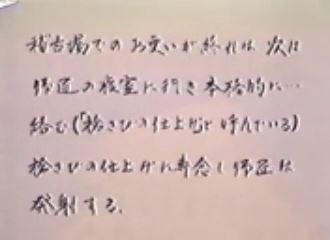 稽古場でのお笑いが終れば 次は
師匠の寝室に行き本格的に…
絡む(「粉さひの仕上げ」と呼んでいる)
仕上げに専念し師匠は
発射する。